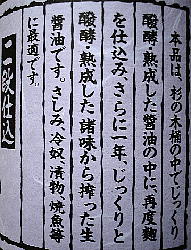 本品は、杉の木桶の中でじっくり
醗酵・熟成した醤油の中に、再度麹
を仕込み、さらに一年、じっくりと
醗酵・熟成した諸味から搾った生
醤油です。さしみ、冷奴、漬物、焼魚等
に最適です。
二段仕込